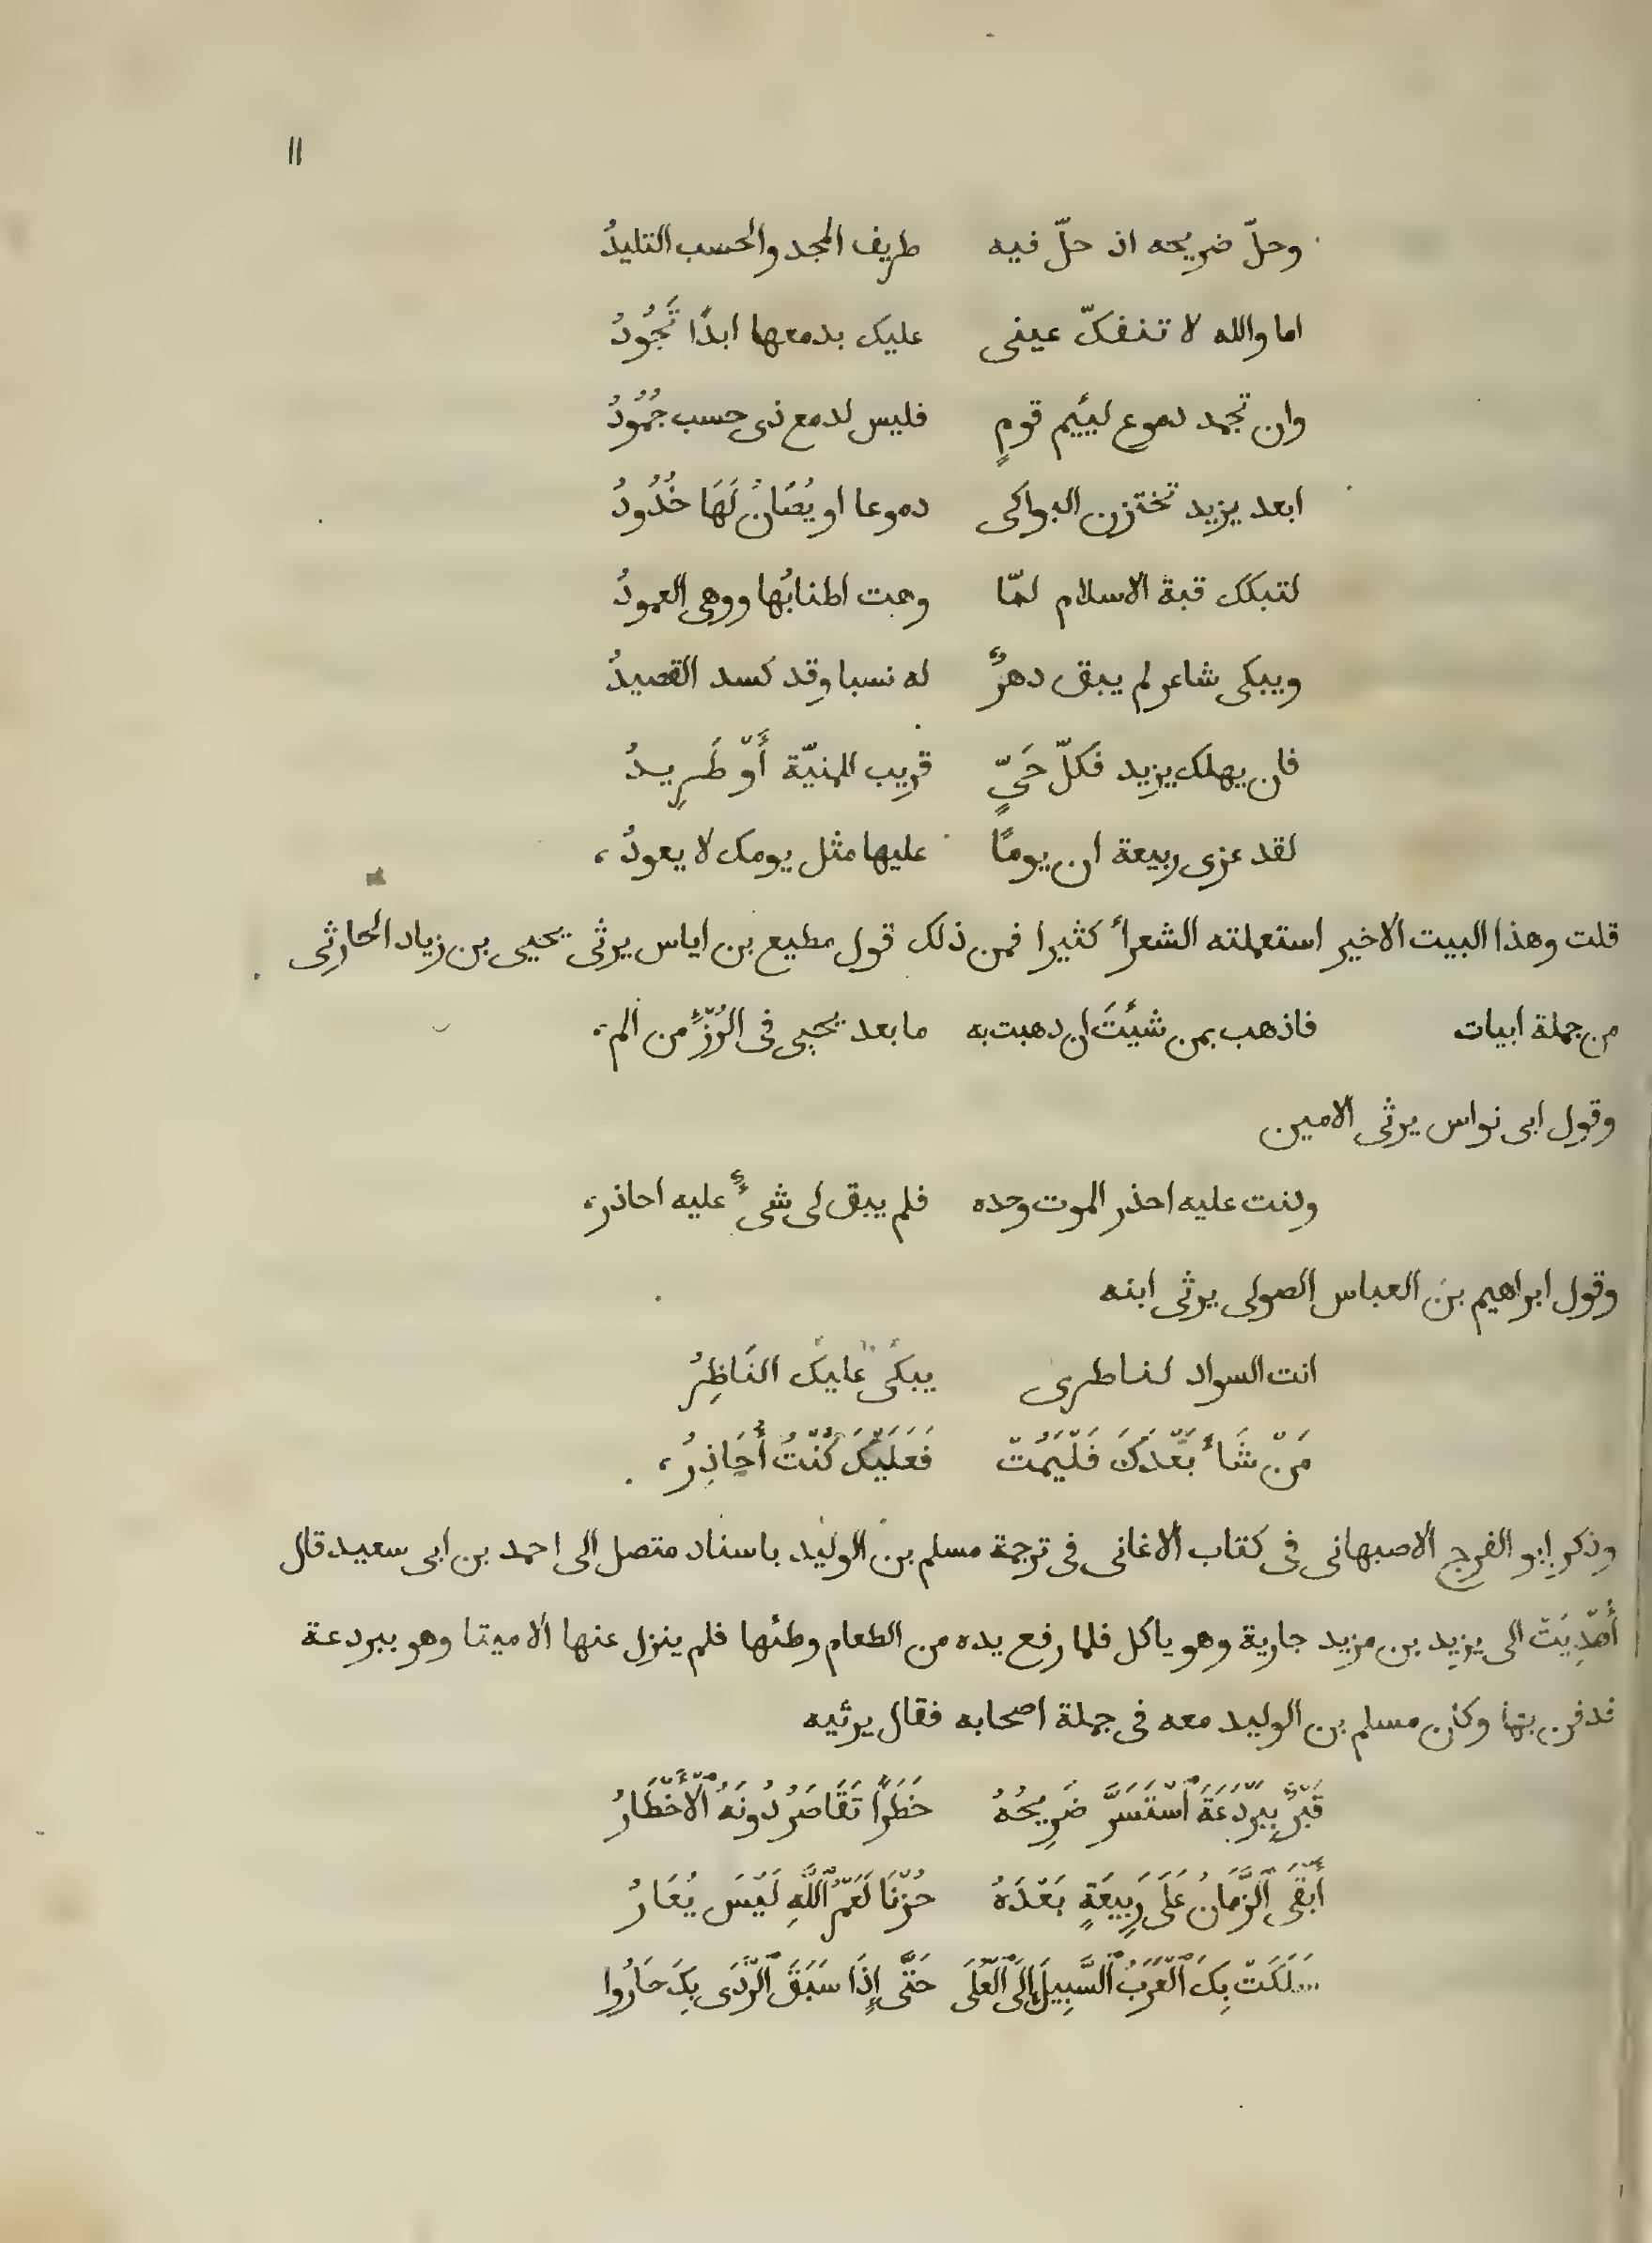 ١١
وحلّ ضريحه اذ حلّ فيه طريف المجد والحسب التليدُ
اما والله لا تنفكّ عينى عليك بدمعها ابدًا تَجُودُ
وان تجمد دموع ليئيم قومٍ فليس لدمع ذى حسب جُمُودُ
ابعد يزيد تختزن البواكى دموعا او يُصَانُ لَهَا خُدُودُ
لتبكك قبة الاسلام لمّا وهت اطنابُها ووهى العمودُ
ويبكى شاعر لم يبق دهرٌ له نسبا وقد كسد القصيدُ
فان يهلك يزيد فكلّ حَىٍّ قريب للمنيّة أَوْ طَرِيدُ
لقد عزى ربيعة ان يومًا عليها مثل يومك لا يعودُ،
قلت وهذا البيت الاخير استعملته الشعرأ كثيرا فمن ذلك قول مطيع بن اياس يرثى يحيى بن زياد الحارثى
من جملة ابيات فاذهب بمن شئتَ ان دهبت به ما بعد يحيى فى الرُزْءِ من الم،
وقول ابى نواس يرثى الامين
وكنت عليه احذر الموت وحده فلم يبق لى شىءٌ عليه احاذر،
وقول ابراهيم بن العباس الصولى يرثى ابنه
انت السواد لناطرى يبكى عليك النَاظِرُ
مَنْ شَاءَ بَعْدَكَ فَلْيَمُتْ فَعَلَيْكَ كُنْتُ أُحَاذِرُ،
وذكر ابو الفرج الاصبهانى فى كتاب الاغانى فى ترجمة مسلم بن الوليد باسناد متصل الى احمد بن ابى سعيد قال
أُهْدِيَتْ الى يزيد بن مزيد جارية وهو ياكل فلما رفع يده من الطعام وطئها فلم ينزل عنها الا ميتا وهو ببردعة
فدفن بها وكان مسلم بن الوليد معه فى جملة اصحابه فقال يرثيه
قَبْرٌ بِبَرْدَعَةَ ٱسْتَسَرَّ ضَرِيحُهُ خَطَرًا تَقَاصَرُ دُونَهُ ٱلْأَخْطَارُ
أَبْقَى ٱلزَّمَانُ عَلَى رَبِيعَةٍ بَعْدَهُ حُزْنًا لَعَمْرُ ٱللَّهِ لَيْسَ يُعَارُ
...لَكَتْ بِكَ ٱلْعَرَبُ ٱلسَّبِيلَ إِلَى ٱلْعُلَى حَتَّى إِذَا سَبَقَ ٱلرَّدَى بِكَ حَارُوا